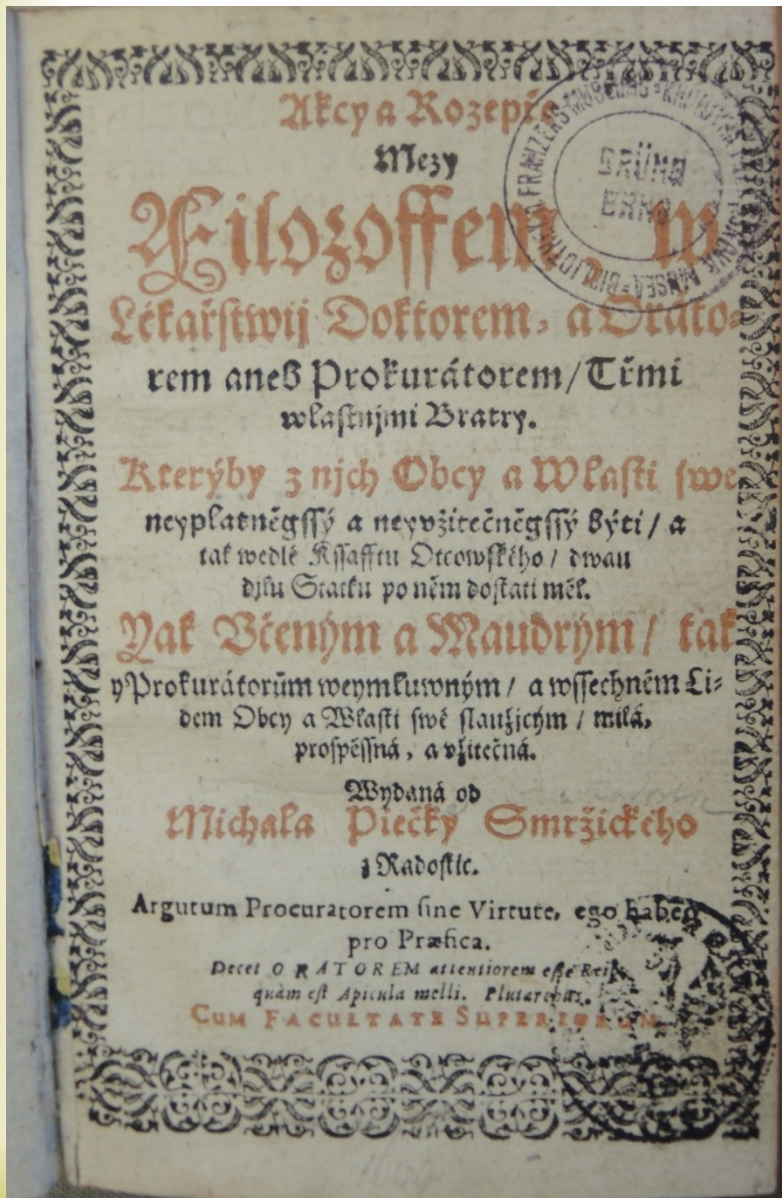 Akcy a Rozepře
Mezy
Filozoffem, w
Lékařstwij Doktorem, a Oráto-
rem aneb Prokurátorem/ Třmi
wlastnjmi Bratry.
Kterýby z njch Obcy a Wlasti swé
neyplatněgssý a neyvžitečněgssý býti/ a
tak wedlé Kssafftu Otcowského/ dwau
djlu Statku po něm dostati měl.
Yak Včeným a Maudrým/ tak
y Prokurátorům weymluwným/ a wssechněm Li-
dem Obcy a Wlasti swé slaužjcým/ milá,
prospěssná, a vžitečná.
Wydaná od
Michala Piečky Smržického
z Radostic.
Argutum Procuratorem sine Virtute, ego habeo
pro Præfica.
Decet ORATOREM attentiorem esse Reip.
quàm est Apicula melli. Plutarchus.
CUM FACULTATE SUPERIORUM
FRANZENS-MUSEUMS
BRÜNN
BRNO